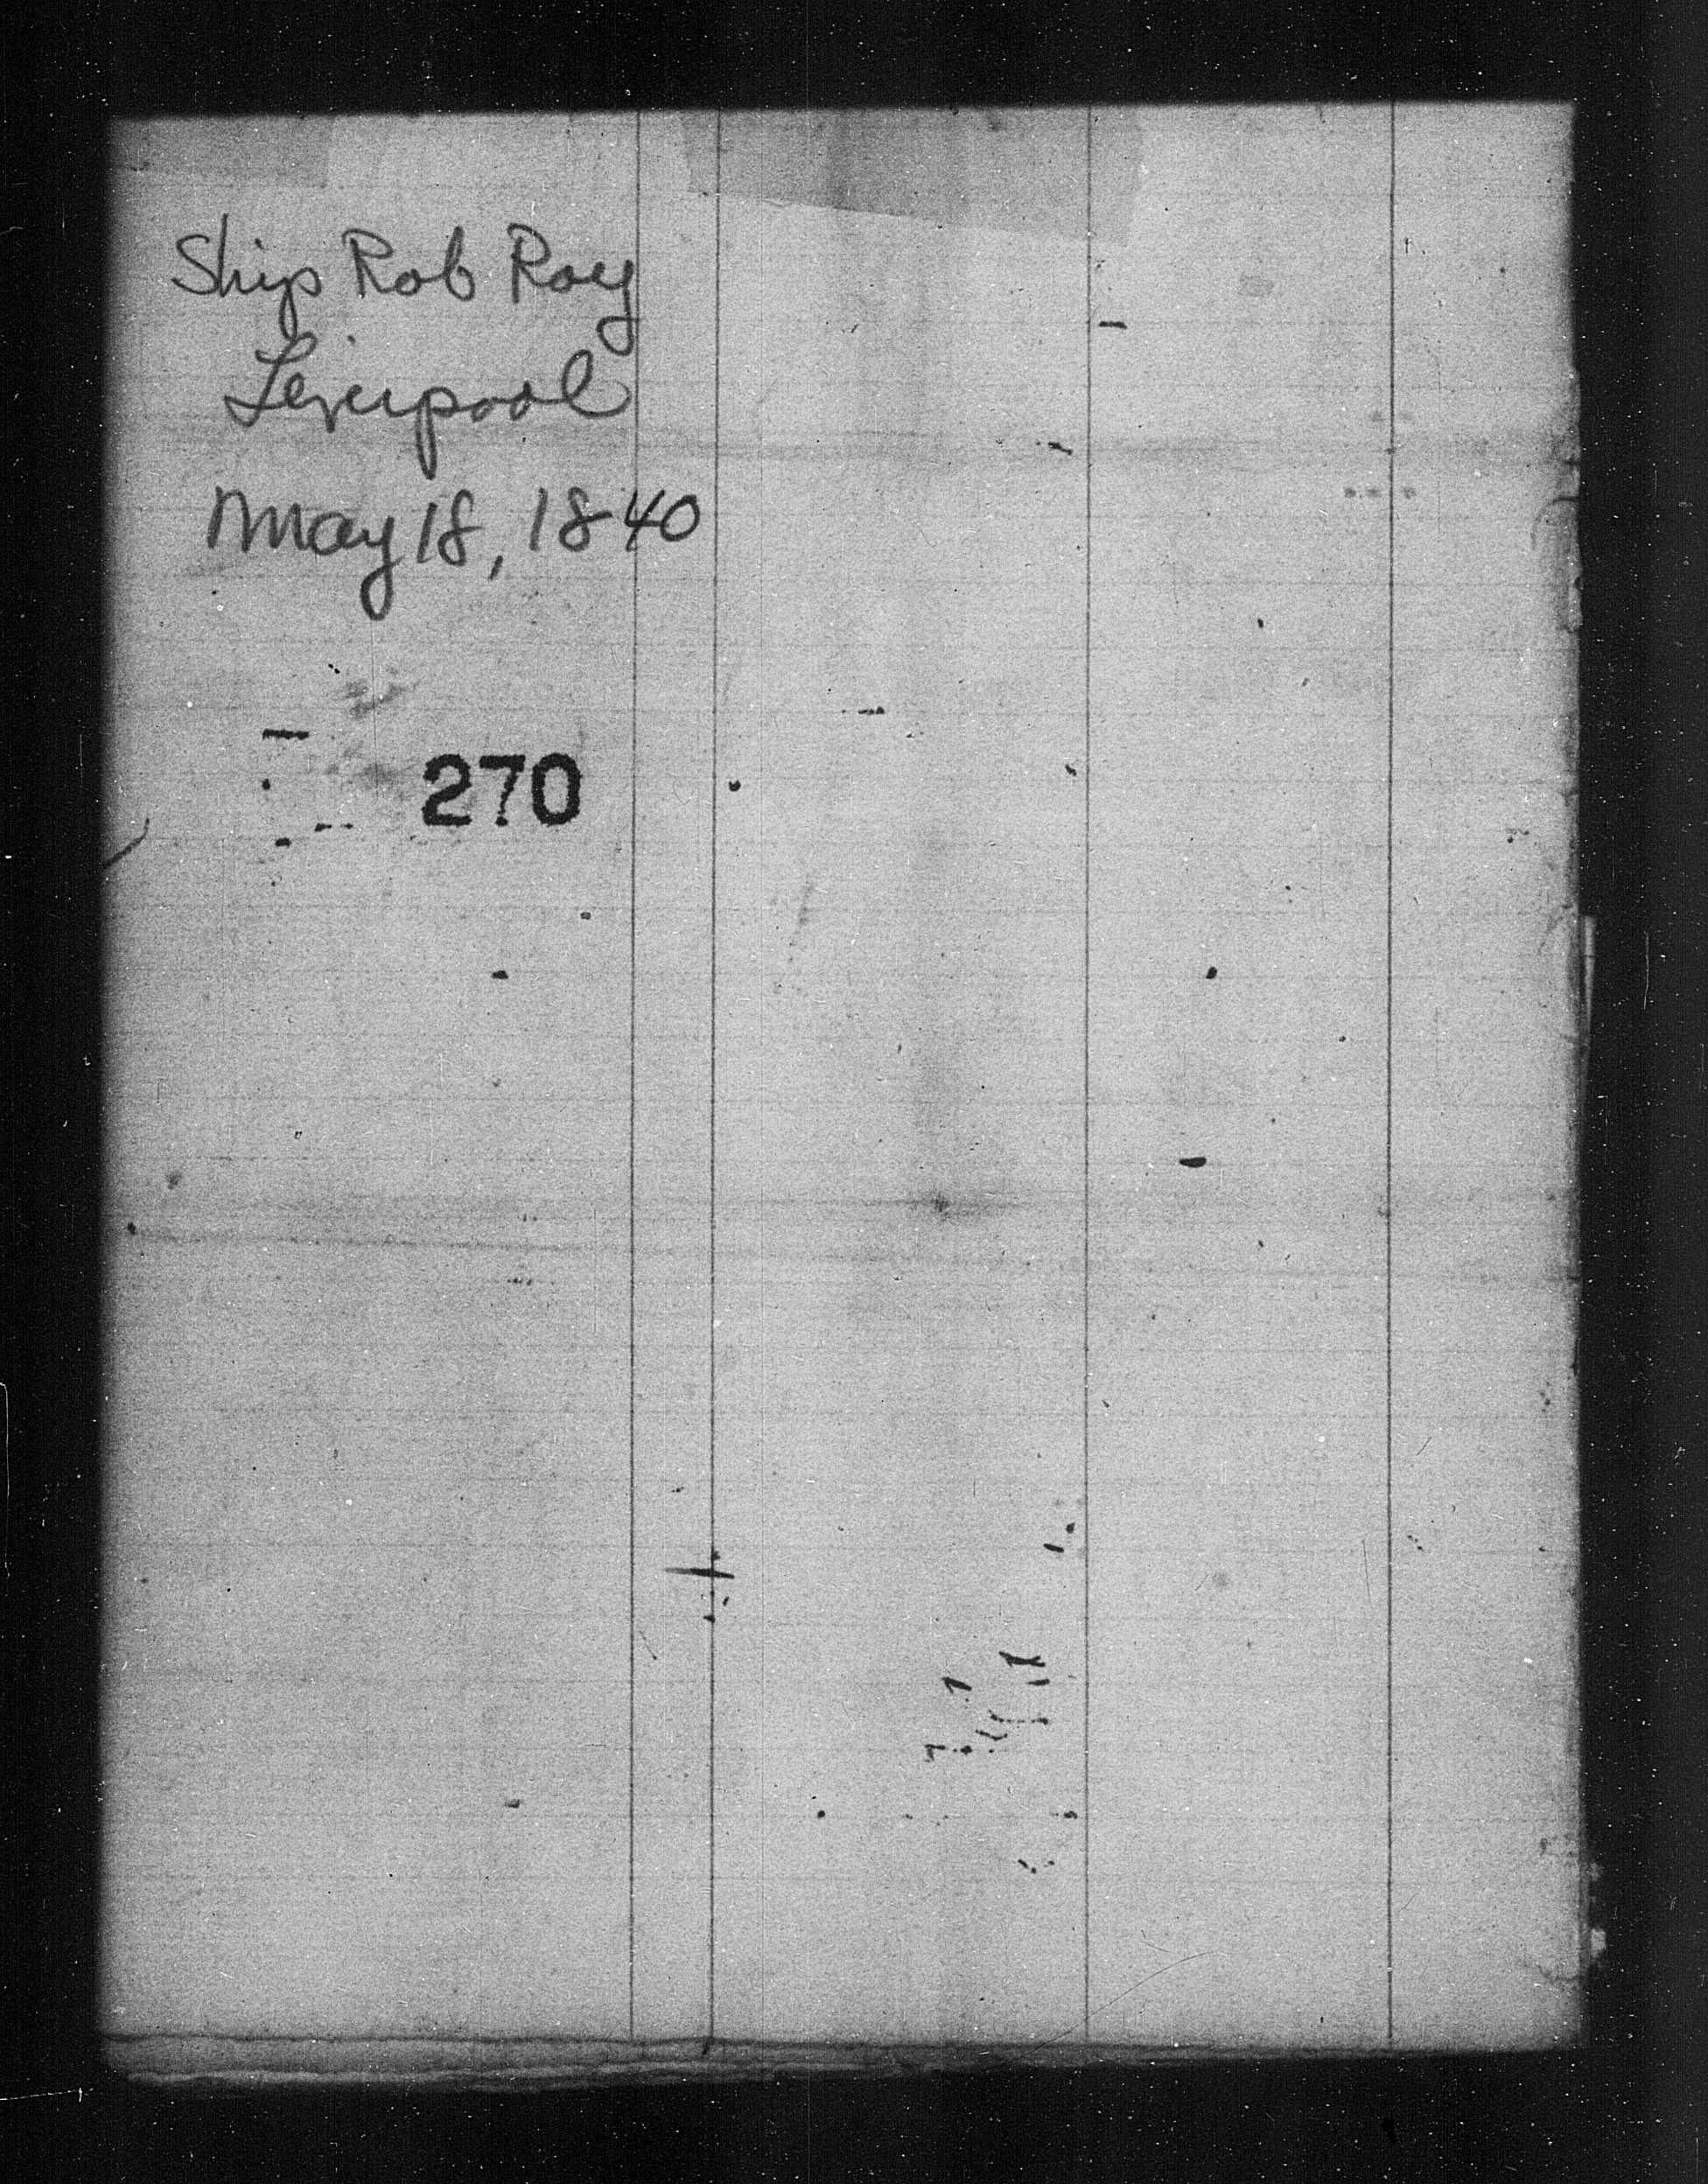 Ship Rob Roy
Liverpool
May 18, 1840
270